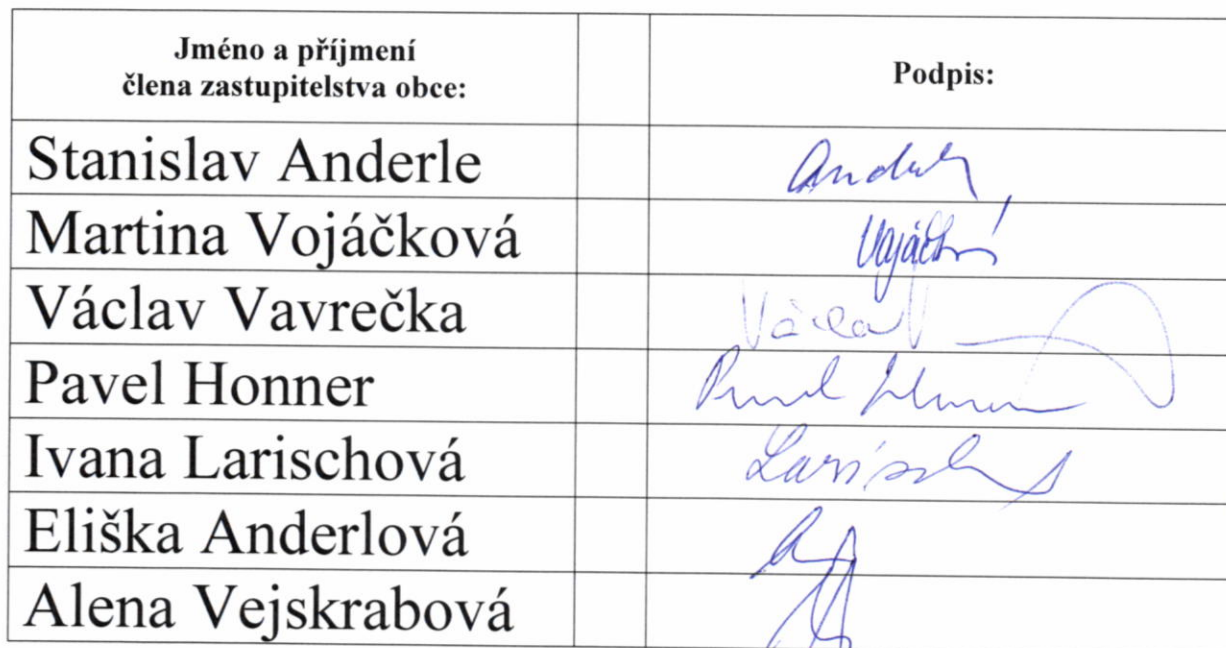 Jméno a příjmení
člena zastupitelstva obce:
Podpis:
Stanislav Anderle
Martina Vojáčková
Václav Vavrečka
Václav
Pavel Honner
Ivana Larischová
Eliška Anderlová
Alena Vejskrabová